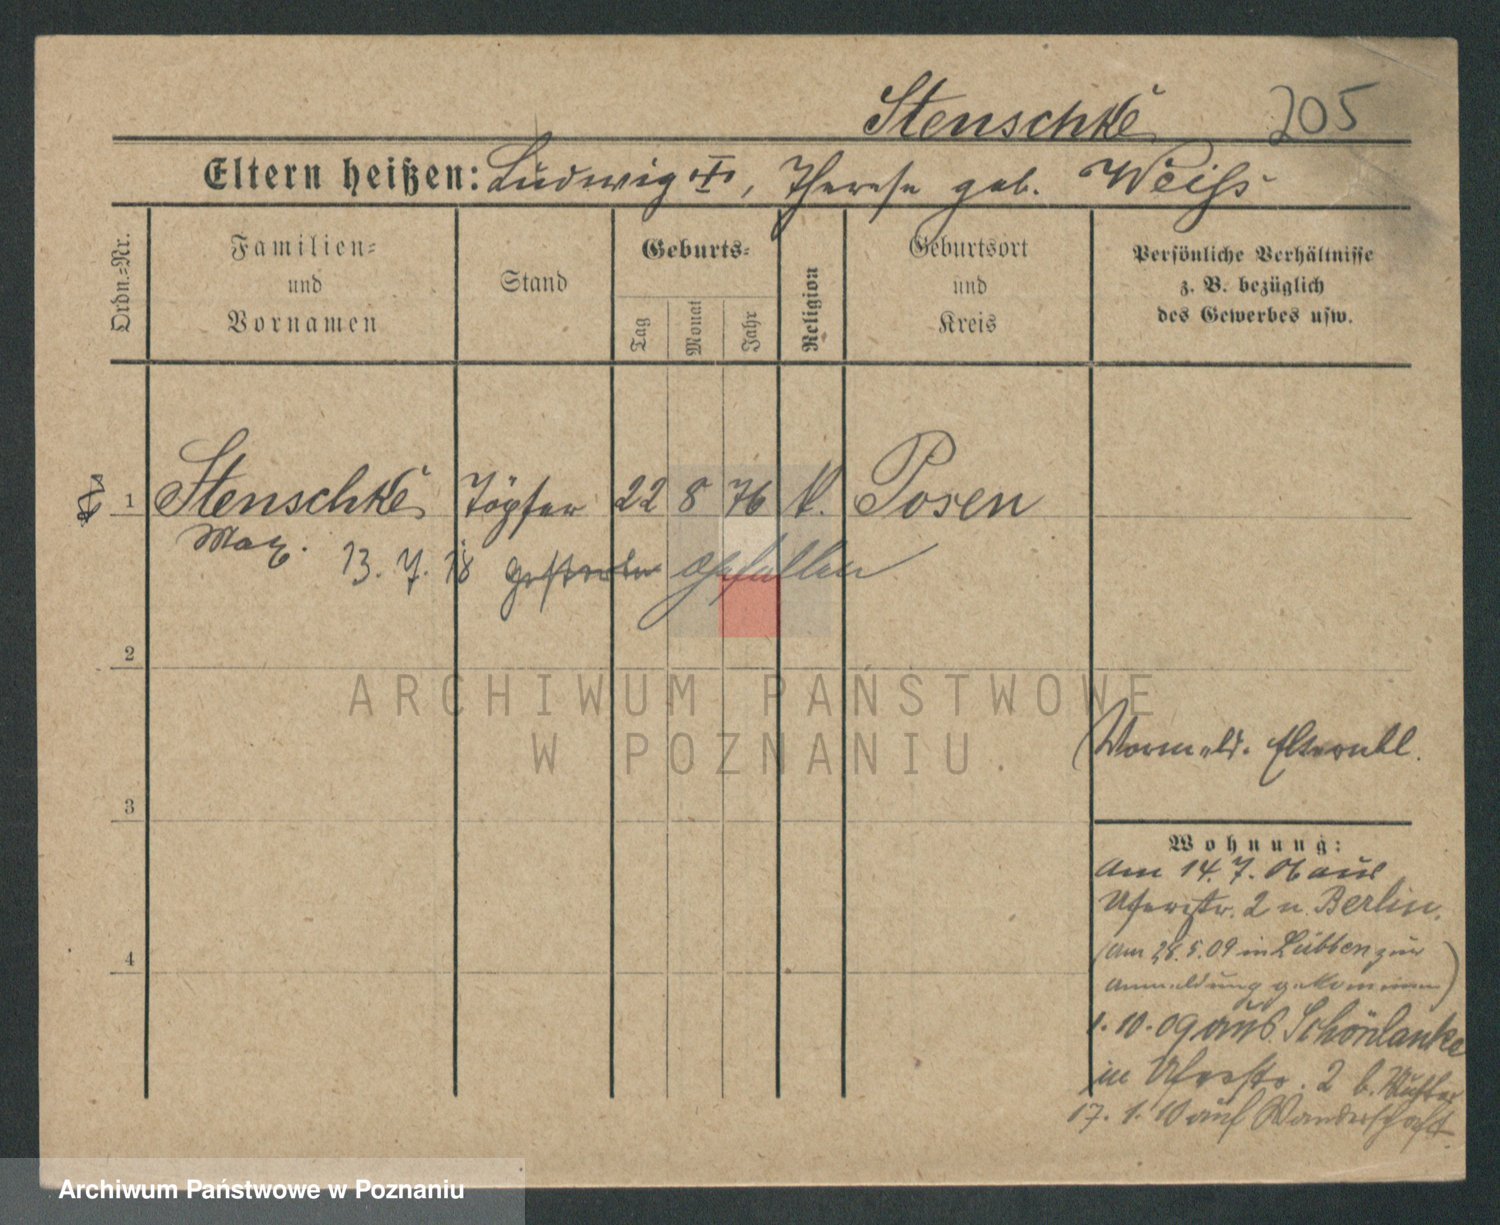 Stenschke 205
Eltern heißen: Ludwig, Therese geb. Weiss
Ordn.=Nr.
Familien=
und
Vornamen
Stand
Geburts=
Tag
Monat
Jahr
Religion
Geburtsort
und
Kreis
Persönliche Verhältnisse
z. B. bezüglich
des Gewerbes usw.
1 Stenschke Töpfer 22 8 76 k. Posen
Max.
13. 7. 18 gestorben gefallen
2
3
4
ARCHIWUM PAŃSTWOWE
W POZNANIU.
Vormeld. Elternbl.
Wohnung:
Am 14. 7. 06 aus
Uferstr. 2 n. Berlin.
(Am 28. 5. 09 in Lübben zur
Anmeldung gekommen)
1. 10. 09 aus Schönlanke
in Uferstr. 2 b. Mutter
17. 1. 10 auf Wanderschaft.
Archiwum Państwowe w Poznaniu